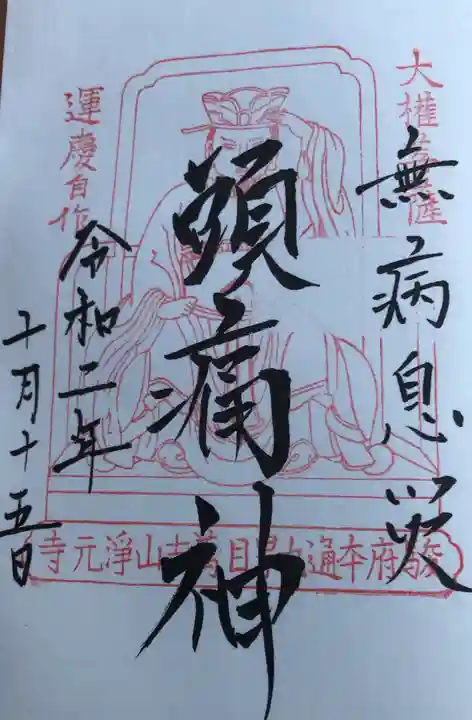 大權菩薩
無病息災
頭痛神
運慶自作
令和二年
十月十五日
駿府本通目萬吉山淨元寺